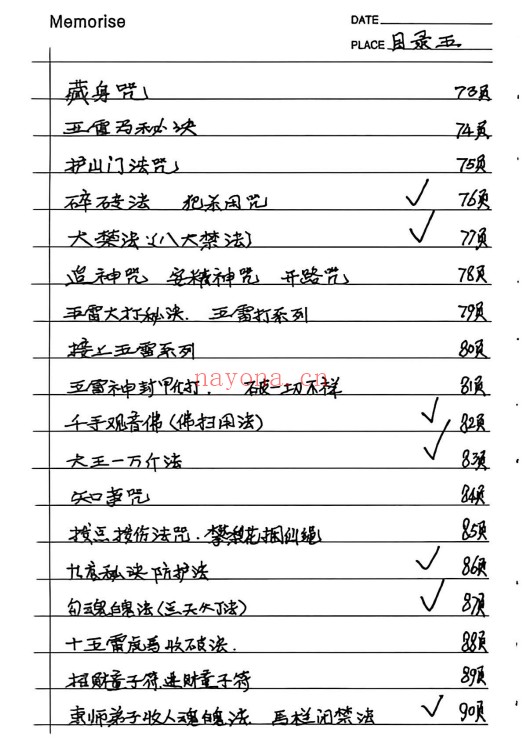 Memorise
DATE
PLACE 目录五
藏身咒 73页
五雷马秘决 74页
护山门法咒 75页
碎砖法 犯杀用咒 76页
大禁法(八大禁法) 77页
追神咒 安精神咒 开路咒 78页
五雷大打秘决. 五雷打系列 79页
接上五雷系列 80页
五雷神封甲 打. 破一切不祥 81页
千手观音佛(佛扫用法) 82页
大王一万个法 83页
知事咒 84页
接伤法咒. 捆仙绳 85页
秘决防护法 86页
勾魂魄法(三天 法) 87页
十五雷 马收破法. 88页
招财童子符 进财童子符 89页
师弟子收人魂魄法 马栏闭禁法 90页
nayona.cn